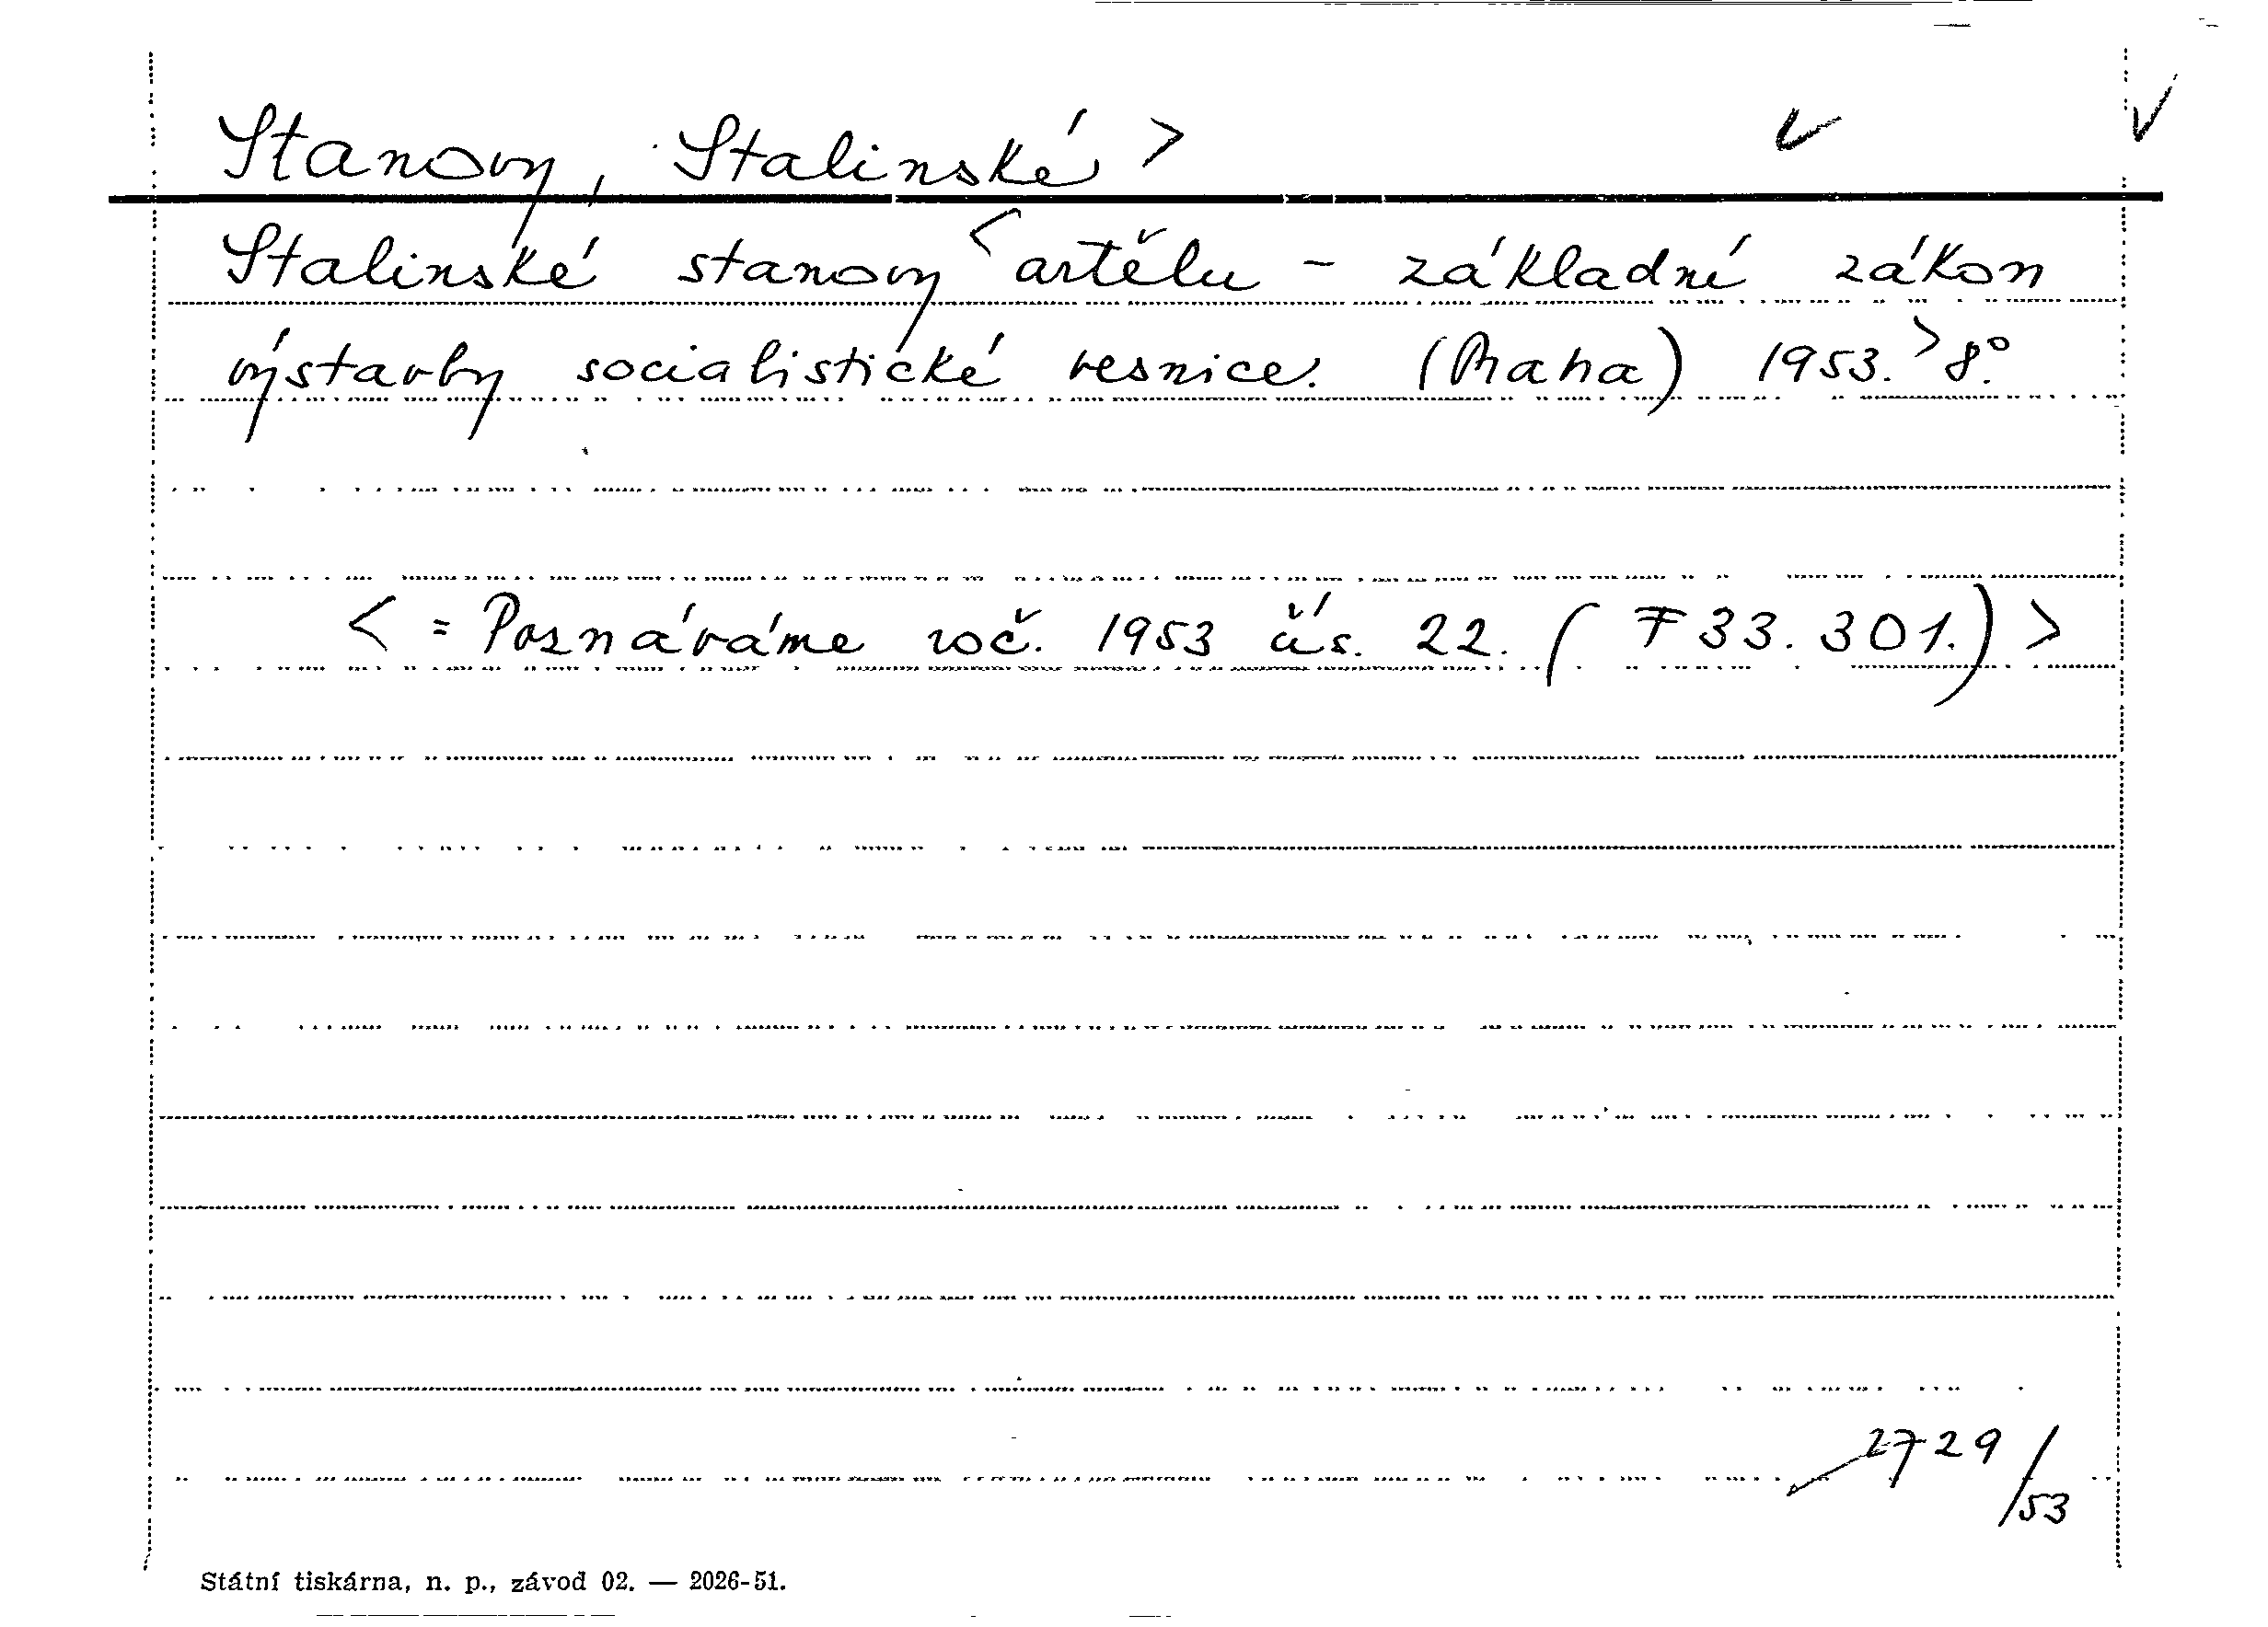 Stanovy, Stalinské >
Stalinské stanovy < artělu - základní zákon
výstavby socialistické vesnice. (Praha) 1953. > 8°.
< = Poznáváme roč. 1953 čís. 22. (F 33.301.) >
2729/53
Státní tiskárna, n. p., závod 02. — 2026-51.